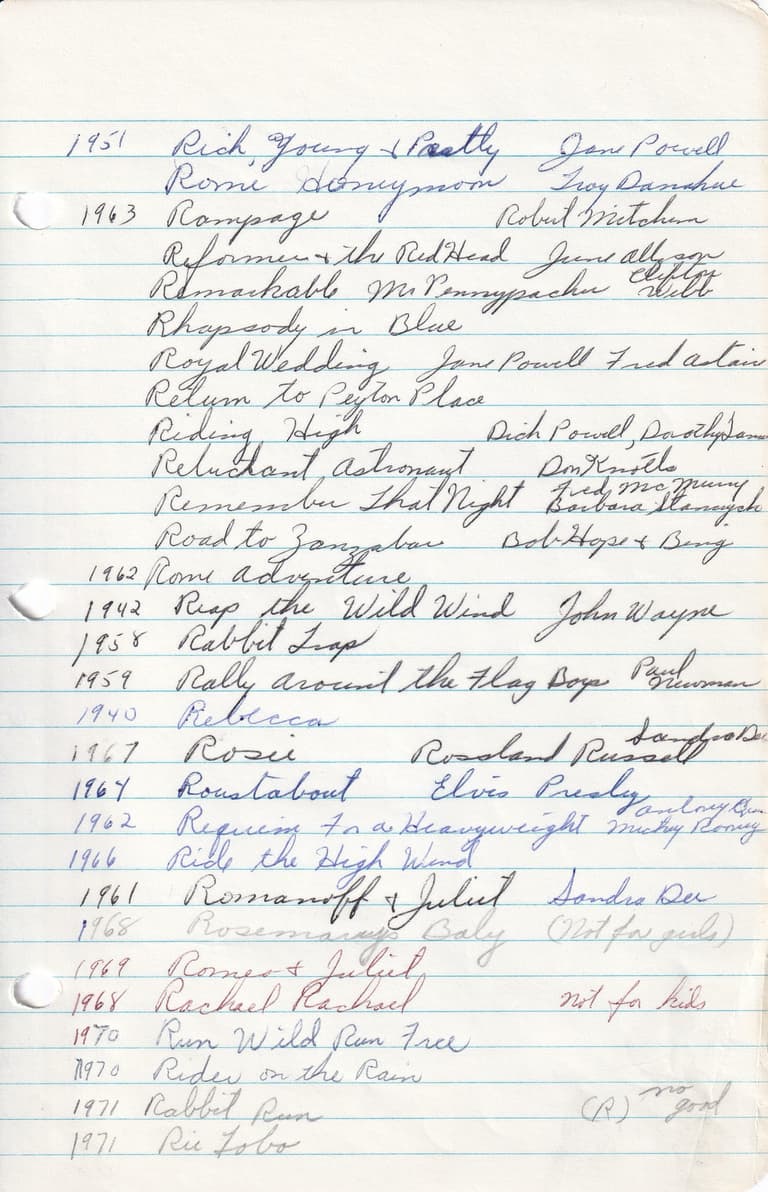 1951 Rich, Young & Pretty Jane Powell
Rome Honeymoon Troy Donahue
1963 Rampage Robert Mitchum
Reformer & the Red Head June Allyson
Remarkable Mr Pennypacker Clifton Webb
Rhapsody in Blue
Royal Wedding Jane Powell Fred Astair
Return to Peyton Place
Riding High Dick Powell, Dorothy Lamou
Reluctant Astronaut Don Knotts
Remember That Night Fred McMurry Barbara Stanwyck
Road to Zanzabar Bob Hope & Bing
1962 Rome Adventure
1942 Reap the Wild Wind John Wayne
1958 Rabbit Trap
1959 Rally Around the Flag Boys Paul Newman
1940 Rebecca
1967 Rosie Rossland Russell Sandra Dee
1964 Roustabout Elvis Presley
1962 Requiem For a Heavyweight Mickey Rooney
1966 Ride the High Wind
1961 Romanoff & Juliet Sandra Dee
1968 Rosemarys Baby (Not for girls)
1969 Romeo & Juliet
1968 Rachael Rachael not for kids
1970 Run Wild Run Free
1970 Rider on the Rain
1971 Rabbit Run (R) no good
1971 Rio Lobo